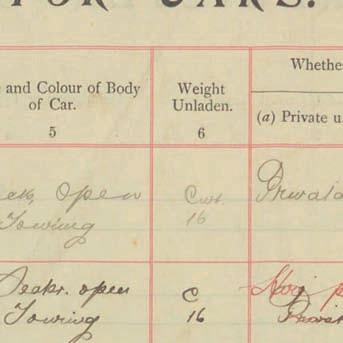 FOR CARS.
and Colour of Body
of Car.
5
Weight
Unladen.
6
Whethe
(a) Private u
open
Touring
Cwt
16
Private
Seater. open
Touring
C
16
Private